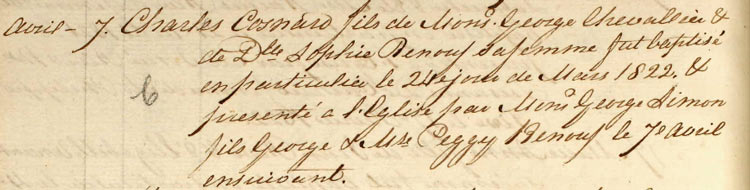 Avril - 7. Charles Cosnard fils de Monsr. George Chevallier &
de Dlle Sophie Renouf sa femme fut baptisé
en particulier le 24e jour de Mars 1822. &
presenté a l'Eglise par Monsr George Simon
fils George & Mlle Peggy Renouf le 7e Avril
ensuivant.